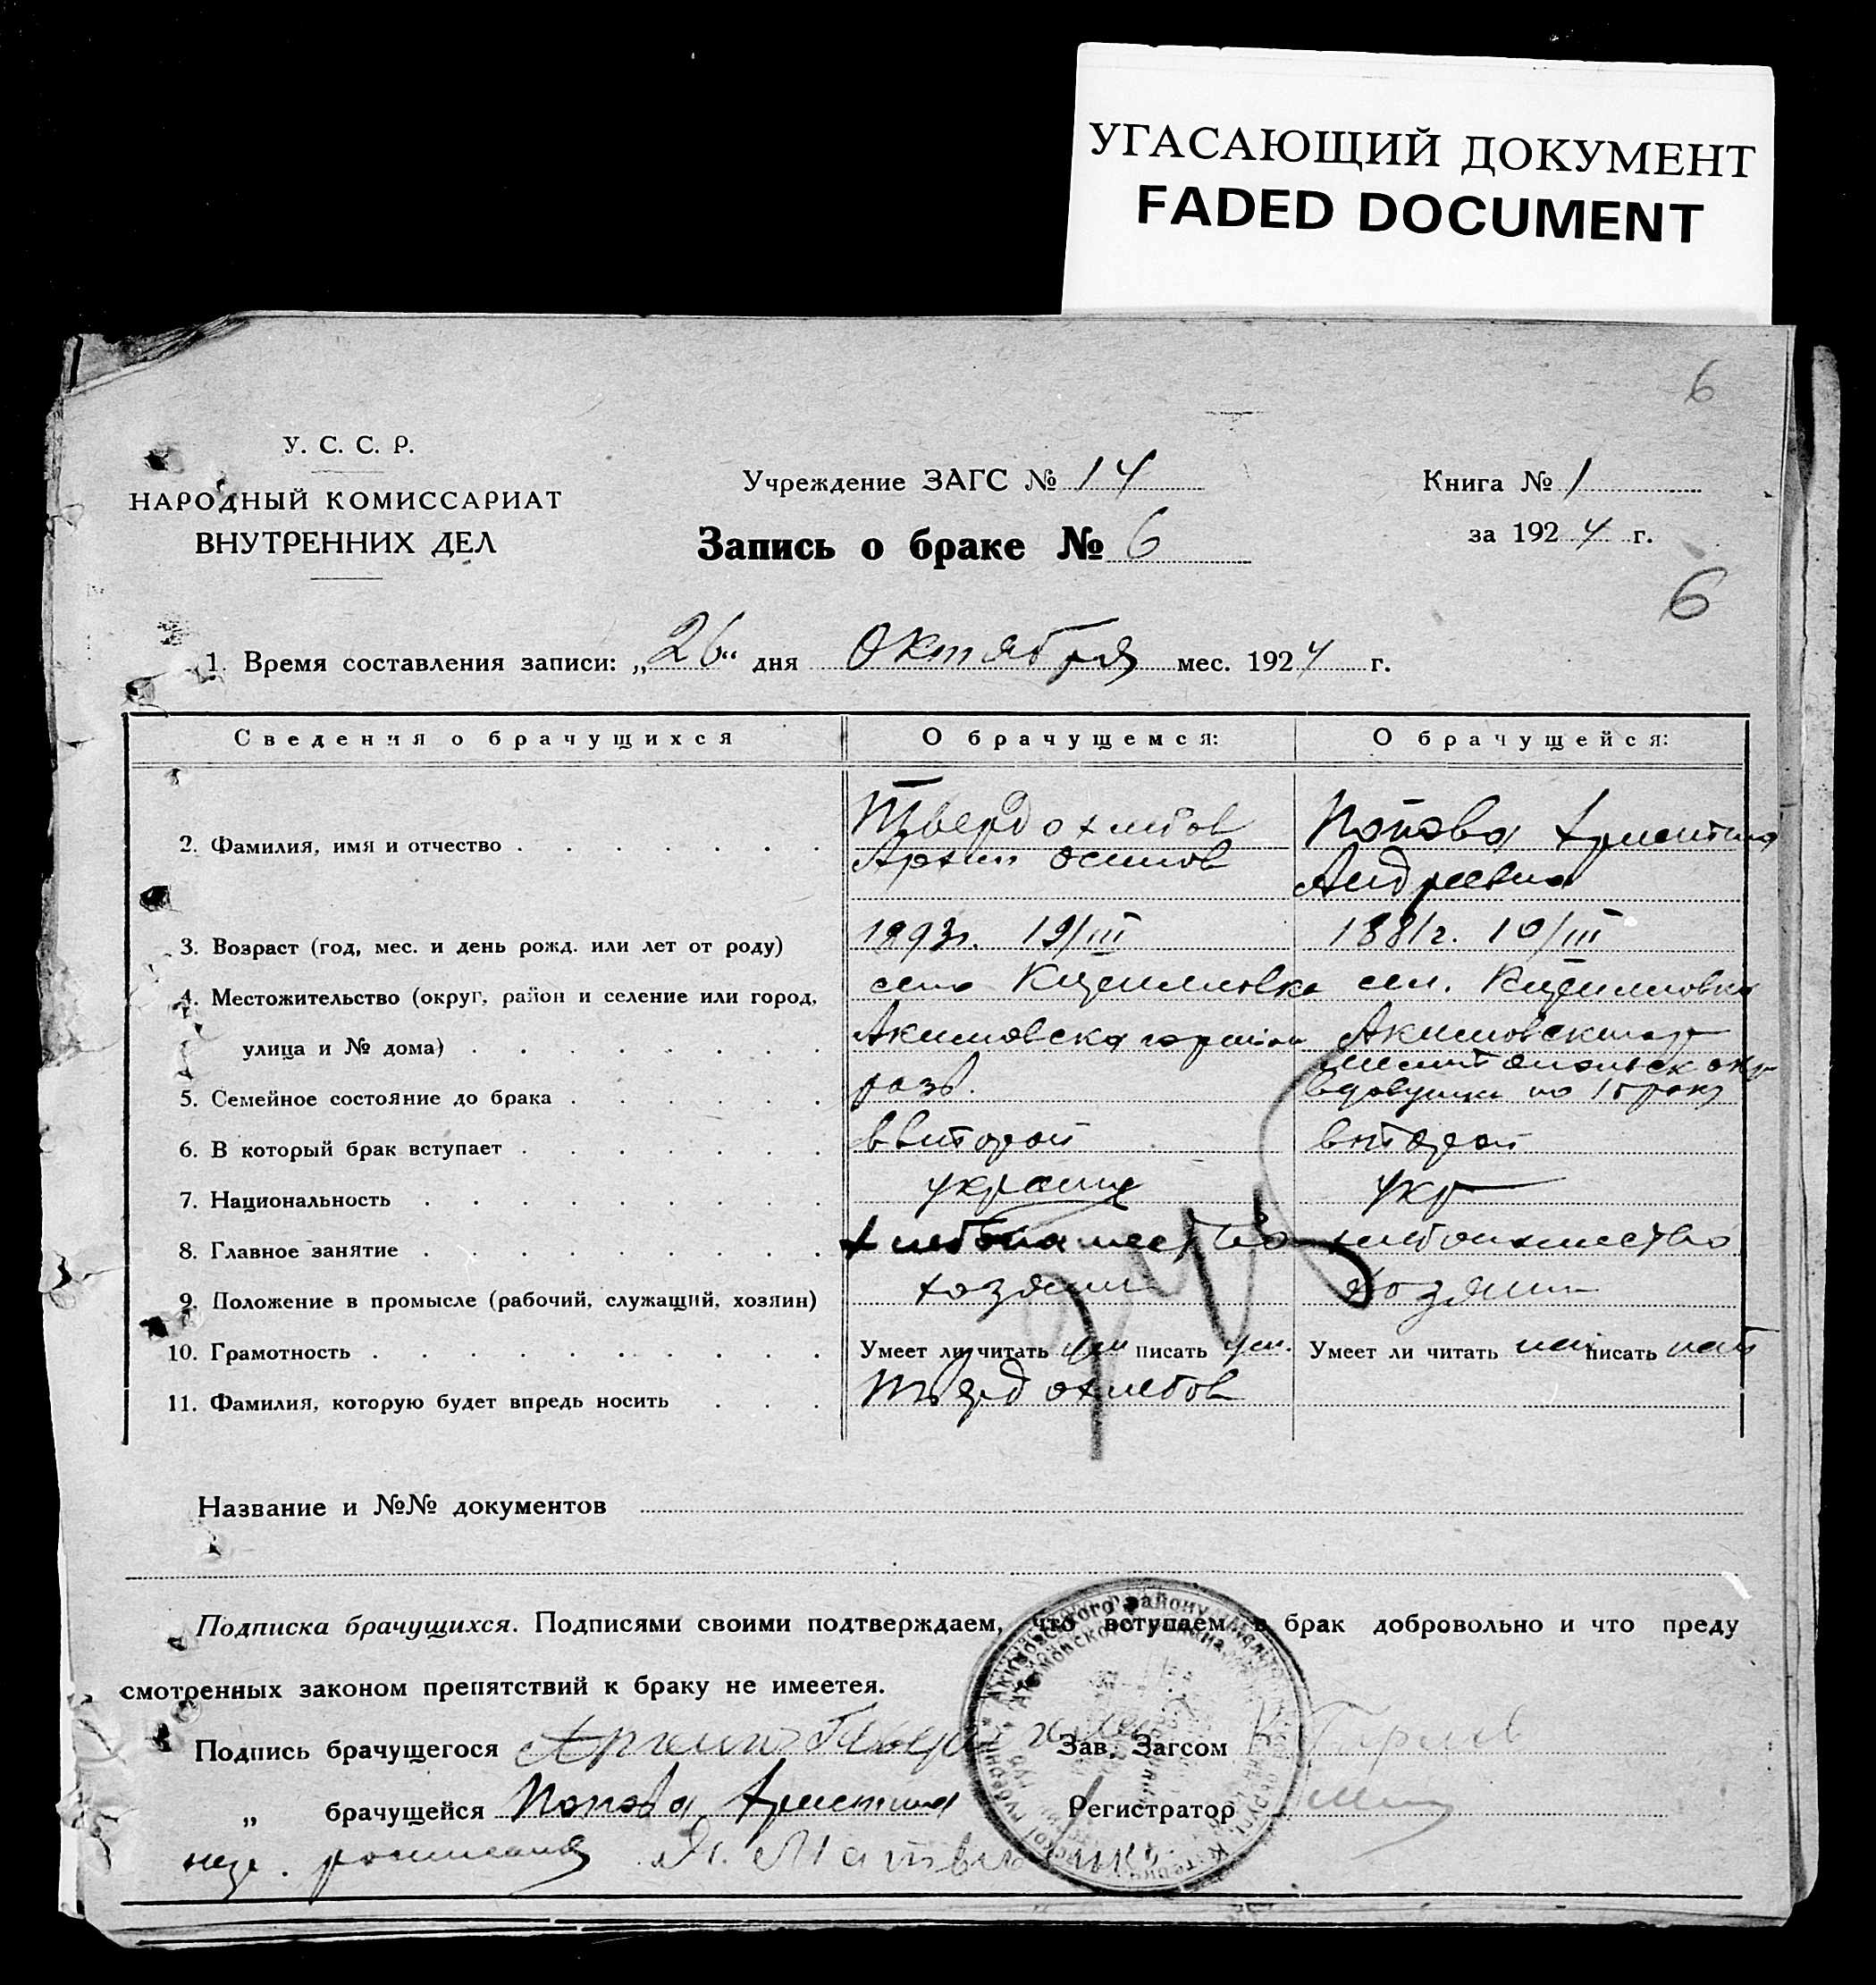 УГАСАЮЩИЙ ДОКУМЕНТ
FADED DOCUMENT
6
У. С. С. Р.
НАРОДНЫЙ КОМИССАРИАТ
ВНУТРЕННИХ ДЕЛ
Учреждение ЗАГС № 14
Книга № 1
Запись о браке № 6
за 1924 г.
6
1. Время составления записи: „26“ дня Октября мес. 1924 г.
Сведения о брачущихся
О брачущемся:
О брачущейся:
2. Фамилия, имя и отчество
Твердохлебов
Архип Осипов
Попова Христина
Андреевна
3. Возраст (год, мес. и день рожд. или лет от роду)
1893г. 19/III
1881г. 10/III
4. Местожительство (округ, район и селение или город,
улица и № дома)
село
Акимовского район
сел.
Акимовского
5. Семейное состояние до брака
разв.
6. В который брак вступает
второй
7. Национальность
укр
8. Главное занятие
хлебопашество
хлебопашество
9. Положение в промысле (рабочий, служащий, хозяин)
хозяин
хозяин
10. Грамотность
Умеет ли читать ум писать ум.
Умеет ли читать писать
11. Фамилия, которую будет впредь носить
Твердохлебов
Название и №№ документов
Подписка брачущихся. Подписями своими подтверждаем, что вступаем в брак добровольно и что преду
смотренных законом препятствий к браку не имеется.
Подпись брачущегося
Зав. Загсом
„ брачущейся Попова Христина
Регистратор